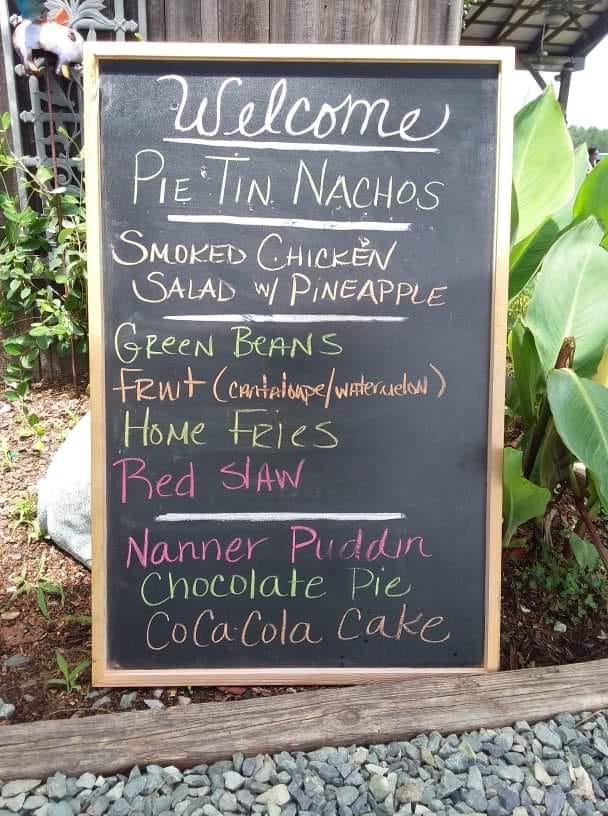 Welcome
PIE TIN NACHOS
SMOKED CHICKEN
SALAD W/ PINEAPPLE
GREEN BEANS
FRUIT (cantaloupe/watermelon)
HOME FRIES
Red SLAW
Nanner Puddin
Chocolate Pie
CoCa-Cola Cake